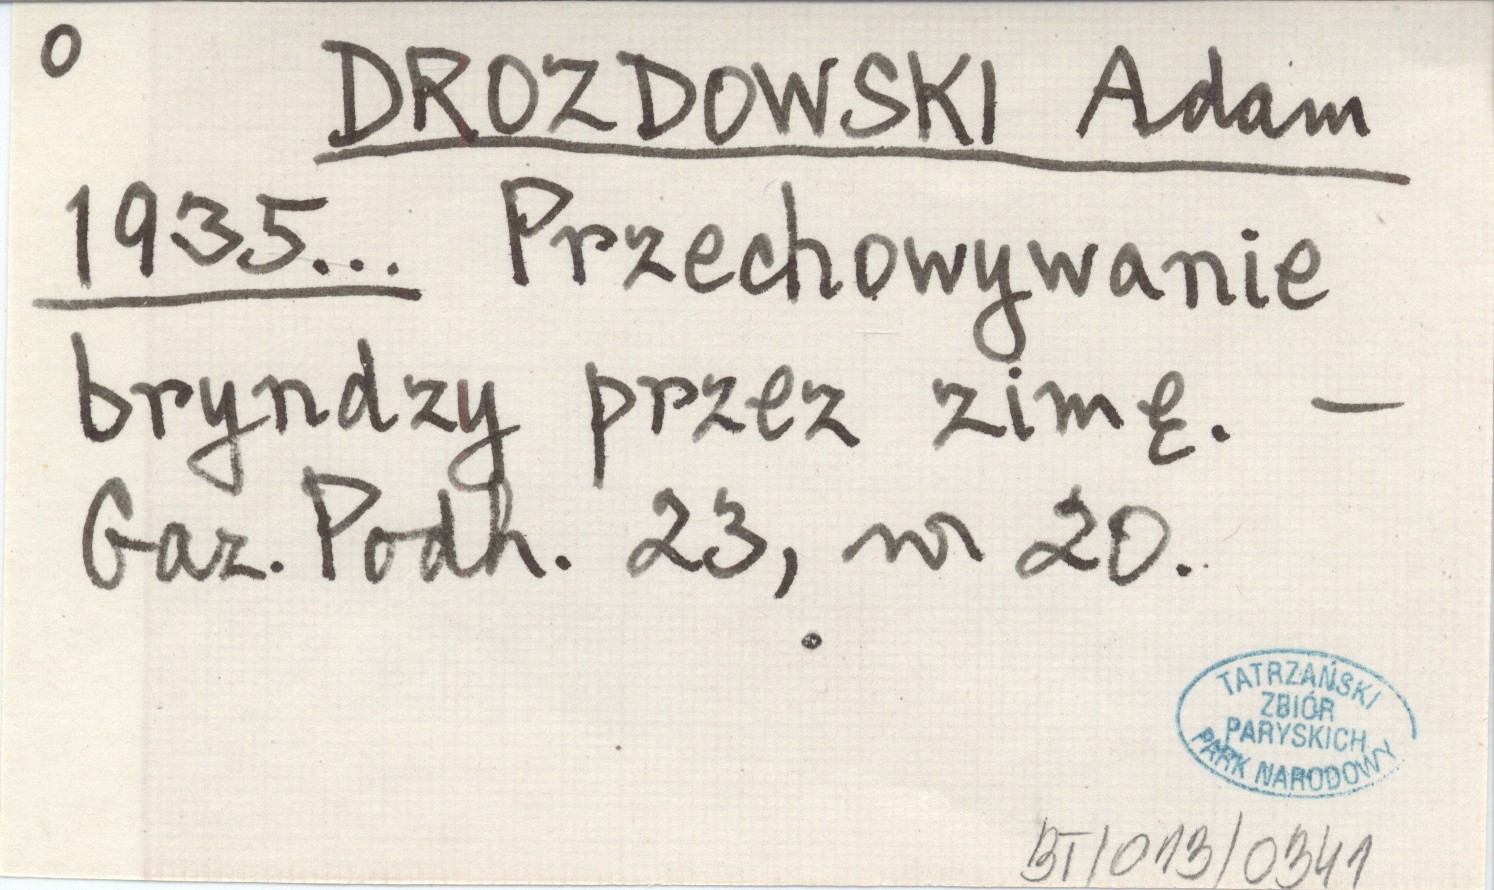 0
DROZDOWSKI Adam
1935... Przechowywanie
bryndzy przez zimę. —
Gaz. Podh. 23, nr 20.
TATRZAŃSKI
ZBIÓR
PARYSKICH
PARK NARODOWY
BT/013/0341